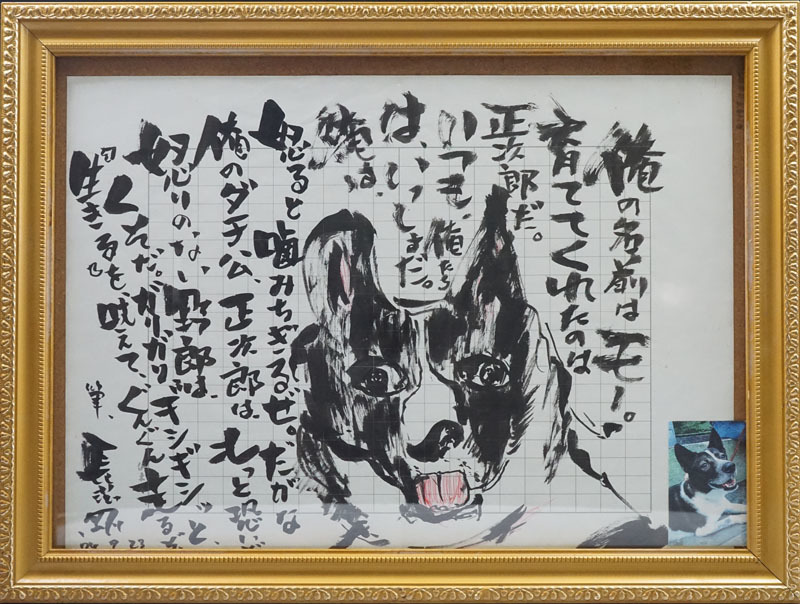 俺の名前はモー。
育ててくれたのは
正次郎だ。
いつも、俺たち
は、いっしょだ。
俺は、
怒ると噛みちぎるぜ。だがな
俺のダチ公、正次郎は、もっと恐い
怒りのない野郎は、
くえだ。ガリガリ、ギンギンと、
『生きる』を吠えて、ぐんぐん
筆、
9.23